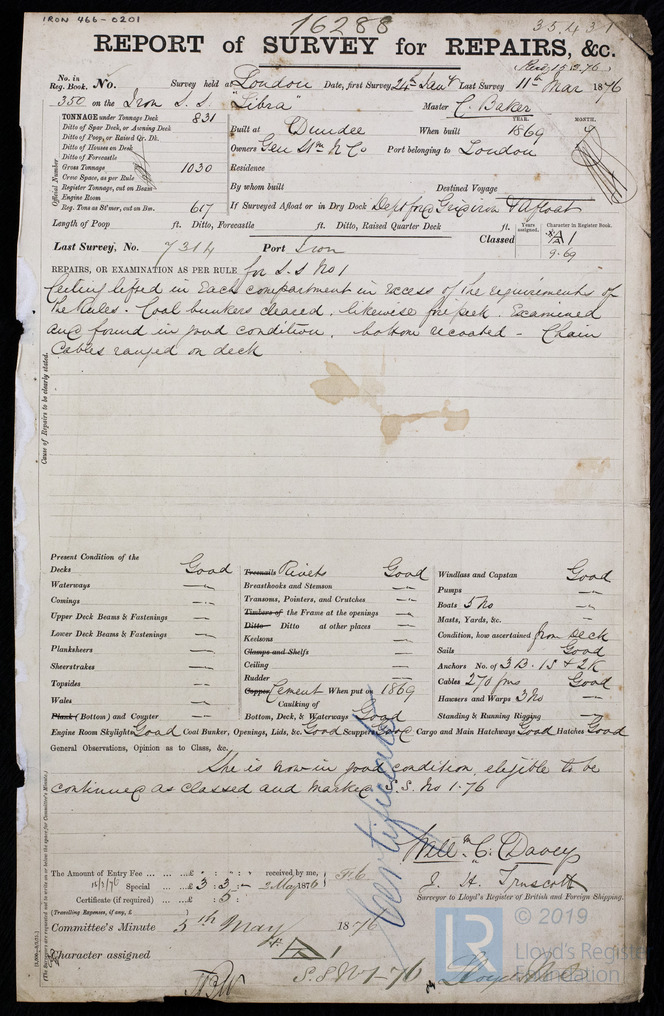 IRON 466-0201
16288
35431
REPORT of SURVEY for REPAIRS, &c.
No. in Reg. Book. No. Survey held at London Date, first Survey 24th Jany Last Survey 11th Mar 1876
350 on the Iron S.S. "Libra" Master C. Baker
TONNAGE under Tonnage Deck 831
Ditto of Spar Deck, or Awning Deck
Ditto of Poop, or Raised Qr. Dk.
Ditto of Houses on Deck
Ditto of Forecastle
Gross Tonnage 1030
Crew Space, as per Rule
Register Tonnage, cut on Beam
Engine Room
Reg. Tons as St'mer, cut on Bm. 617
Official Number
Built at Dundee When built YEAR. 1869 MONTH. 9
Owners Gen Stm N Co Port belonging to London
Residence
By whom built Destined Voyage
If Surveyed Afloat or in Dry Dock Deptford Gridiron & Afloat
Length of Poop ft. Ditto, Forecastle ft. Ditto, Raised Quarter Deck ft.
Last Survey, No. 7314 Port Iron Classed Years assigned. Character in Register Book. A 1
9.69
REPAIRS, OR EXAMINATION AS PER RULE for S.S No 1
Ceiling lifted in each compartment in excess of the requirements of
the Rules. Coal bunkers cleared, likewise fore peak. Examined
and found in good condition. bottom recoated - Chain
Cables ranged on deck
Cause of Repairs to be clearly stated.
Present Condition of the
Decks Good
Waterways —
Comings —
Upper Deck Beams & Fastenings —
Lower Deck Beams & Fastenings —
Planksheers —
Sheerstrakes —
Topsides —
Wales —
Plank (Bottom) and Counter —
Treenails Rivets Good
Breasthooks and Stemson —
Transoms, Pointers, and Crutches —
Timbers of the Frame at the openings —
Ditto Ditto at other places —
Keelsons —
Clamps and Shelfs —
Ceiling —
Rudder —
Copper Cement When put on 1869
Caulking of
Bottom, Deck, & Waterways Good
Windlass and Capstan Good
Pumps —
Boats 5 No —
Masts, Yards, &c. —
Condition, how ascertained from deck
Sails Good
Anchors No. of 3 B. 1 S & 2 K
Cables 270 fms Good
Hawsers and Warps 3 No —
Standing & Running Rigging —
Engine Room Skylights Good Coal Bunker, Openings, Lids, &c. Good Scuppers Good Cargo and Main Hatchways Good Hatches Good
General Observations, Opinion as to Class, &c.
She is now in good condition, eligible to be
continued as classed and marked S.S. No 1-76
Certificate
Willm C. Davey
J. H. Truscott
Surveyor to Lloyd's Register of British and Foreign Shipping.
The Amount of Entry Fee ... £ : : received by me,
Special ... £ 3 : 3 : - 2 May 1876
Certificate (if required) ... £ : 5 :
(Travelling Expenses, if any, £ )
Committee's Minute 5th May 1876
Character assigned A 1
S.S No 1-76
(The Surveyors are requested not to write on or below the space for Committee's Minute.)
© 2019
LR
Lloyd's Register
Foundation